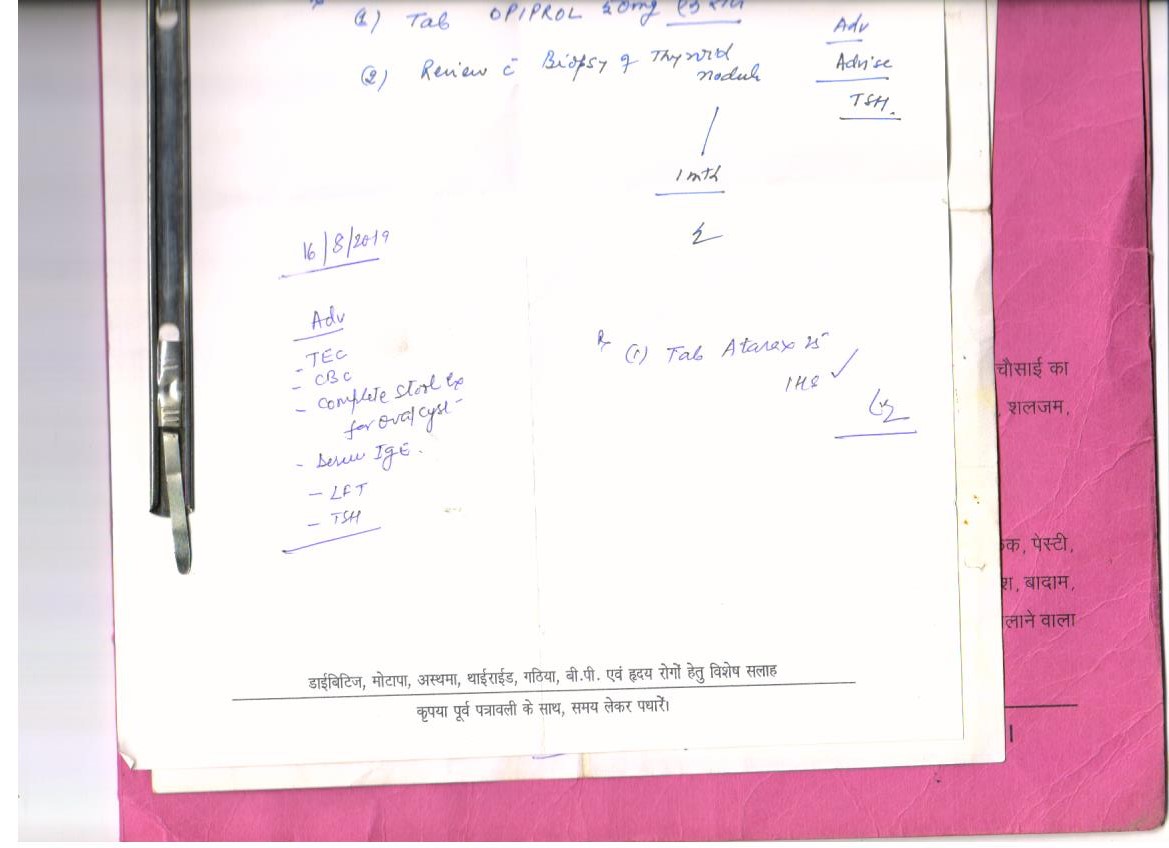 (1) Tab OPIPROL 50mg
(2) Review c̄ Biopsy of Thyroid
nodule
Adv
Advise
TSH.
1 mth
16/8/2019
Adv
- TEC
- CBC
- Complete Stool Ex
for Ova/Cyst
- Serum IgE.
- LFT
- TSH
(1) Tab Atarax 25
1HS ✓
चौसाई का
, शलजम,
क, पेस्टी,
, बादाम,
लाने वाला
डाईबिटिज, मोटापा, अस्थमा, थाईराईड, गठिया, बी.पी. एवं हृदय रोगों हेतु विशेष सलाह
कृपया पूर्व पत्रावली के साथ, समय लेकर पधारें।